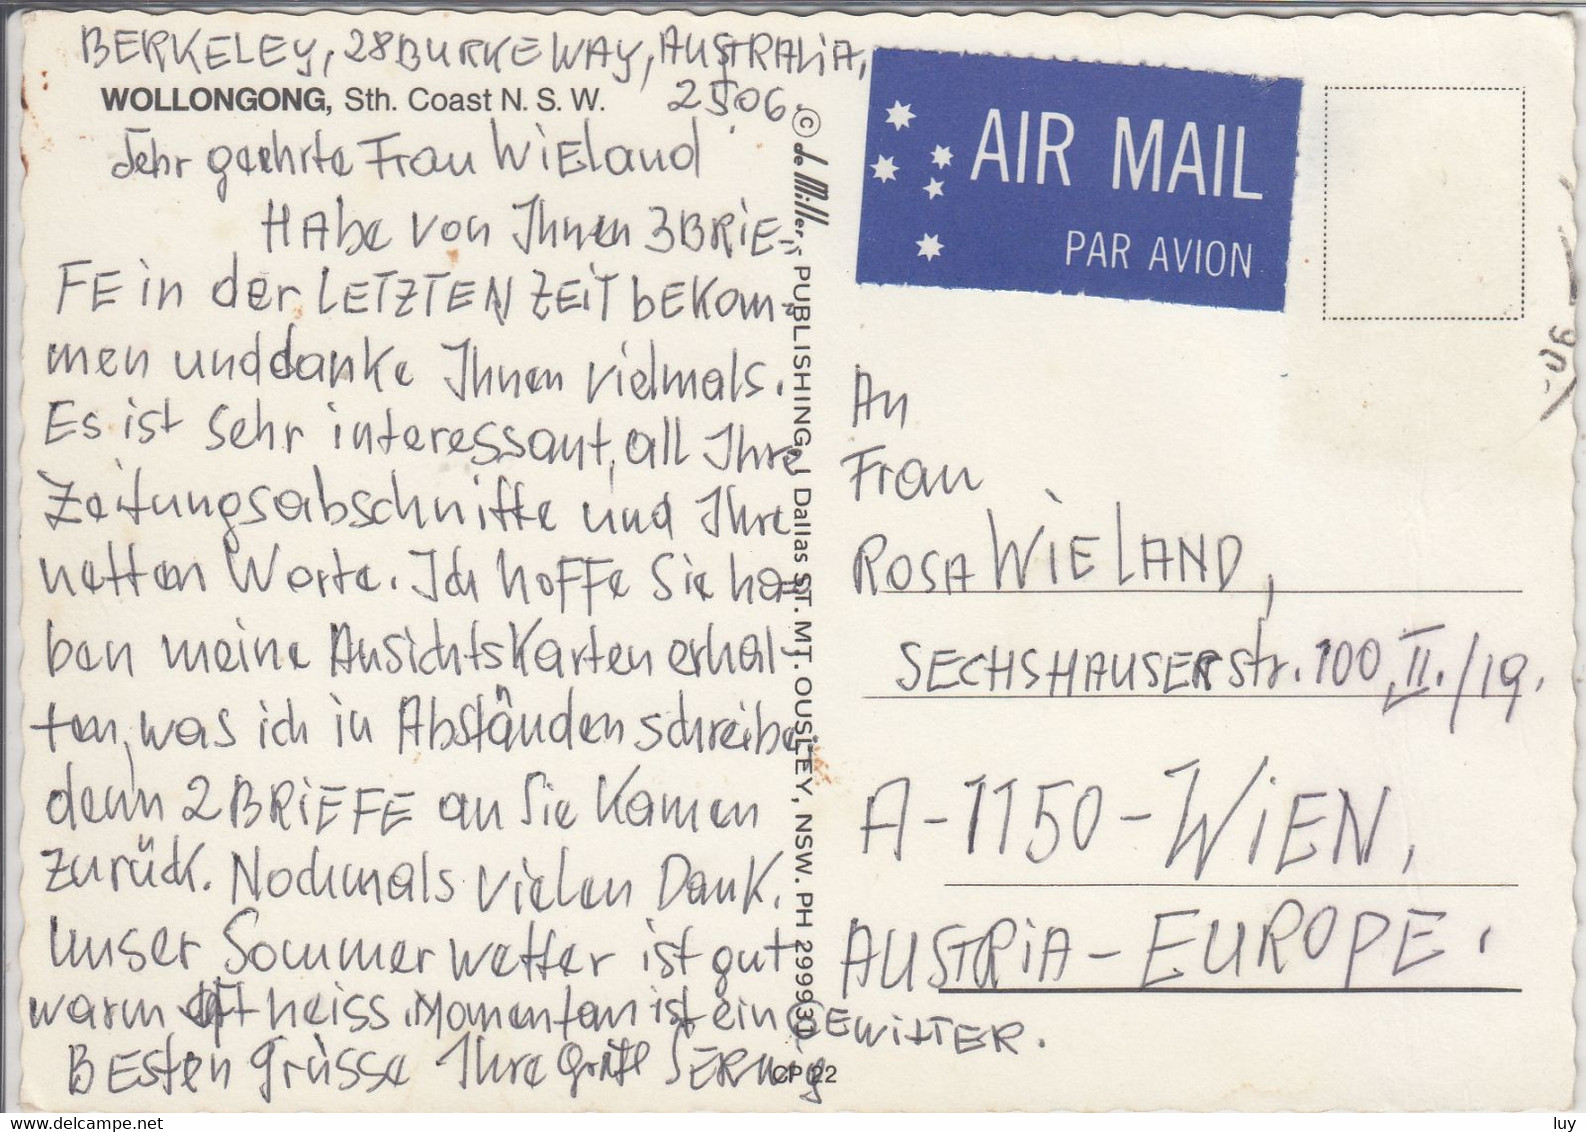 BERKELEY, 28 BURKE WAY, AUSTRALIA,
2506.
WOLLONGONG, Sth. Coast N. S. W.
Sehr geehrte Frau WiElaud
HAbe von Ihnen 3 BRiE-
FE in der LETZTEN ZEiT bEKom-
men und danke Ihnen vielmals.
Es ist sehr interessant, all Ihre
Zeitungsabschnitte und Ihre
netten Worte. Ich hoFFe Sie ha-
ben meine AnsichtsKarten erhal-
ten, was ich in Abständen schreibe,
denn 2 BRiEFE an Sie Kamen
zurück. Nochmals vielen Dank.
Unser Sommerwetter ist gut
warm oft heiss. Momentan ist ein GEWiTTER.
BEsten Grüsse Ihre
© de Miller PUBLISHING, 1 Dallas ST. MT. OUSLEY, NSW. PH 299931
CP 22
AIR MAIL
PAR AVION
An
Frau
ROSA WiELAND,
SECHSHAUSERstr. 100, II./19.
A-1150-WiEN,
AUSTRiA-EUROPE.
luy
www.delcampe.net